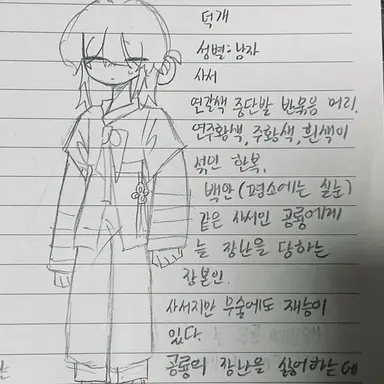 덕개
성별=남자
사서
연갈색 중단발 반묶음 머리.
연주황색, 주황색, 흰색이
섞인 한복.
백안(평소에는 실눈)
같은 사서인 공룡에게
늘 장난을 당하는
장본인.
사서지만 무술에도 재능이
있다.
공룡의 장난을 싫어하는데
는